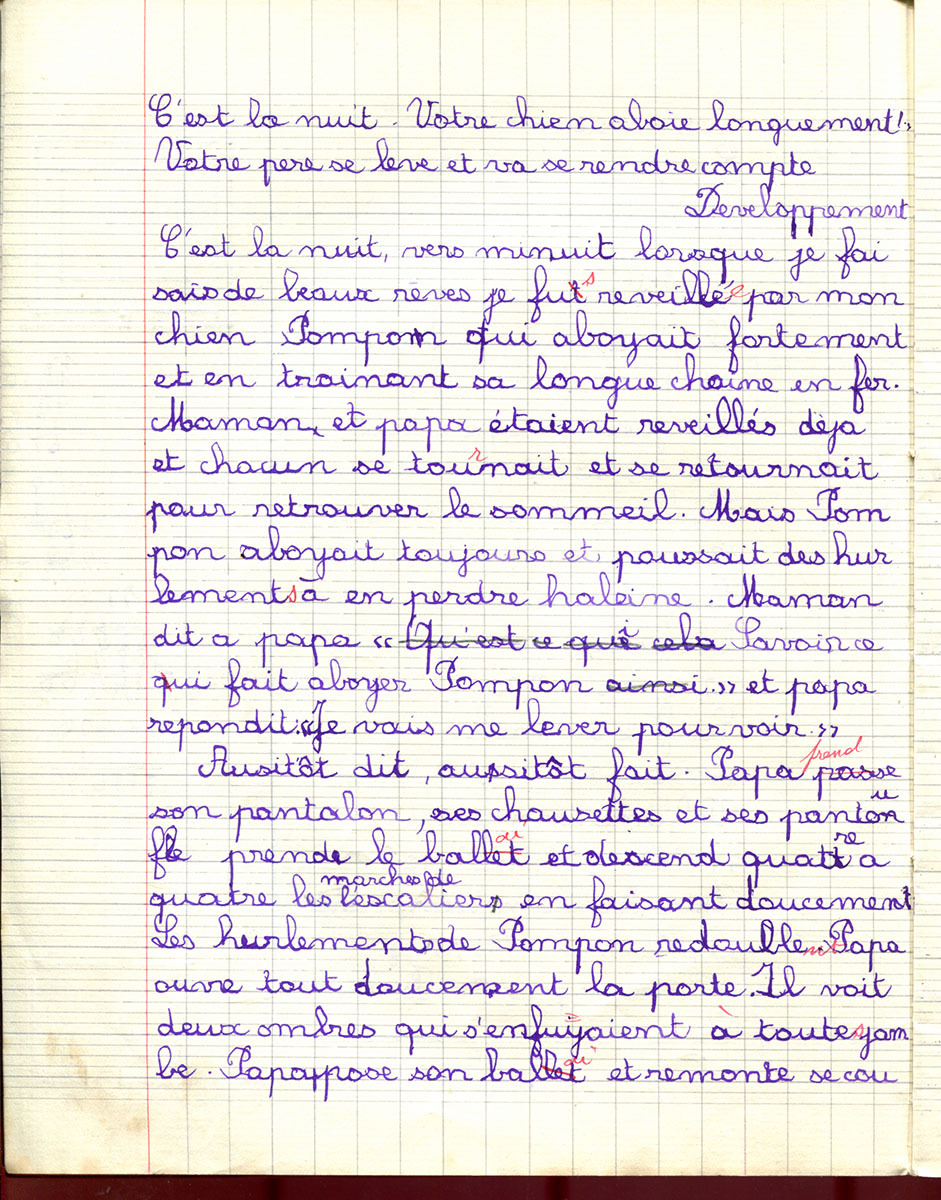 C'est la nuit. Votre chien aboie longuement!,
Votre pere se leve et va se rendre compte
Developpement
C'est la nuit, vers minuit lorsque je fai
sais de beaux rêves je fut s reveillé e par mon
chien Pompom qui aboyait fortement
et en trainant sa longue chaine en fer.
Maman, et papa étaient reveillés dèja
et chacun se tournait et se retournait
pour retrouver le sommeil. Mais Pom
pon aboyait toujours et poussait des hur
lements à en perdre haleine. Maman
dit a papa « Qu'est ce que cela Savoir ce
qui fait aboyer Pompon ainsi.» et papa
repondit:«Je vais me lever pour voir.»
Ausitôt dit, aussitôt fait. Papa passe prend
son pantalon, ses chausettes et ses panton
fle prende le ballet ai et descend quattre a
quatre les marches de l'escaliers, en faisant doucement
Les heurlements de Pompon redouble nt. Papa
ouvre tout doucement la porte. Il voit
deux ombres qui s'enfuyaient à toutes jam
be. Papa pose son ballet ai et remonte se cou